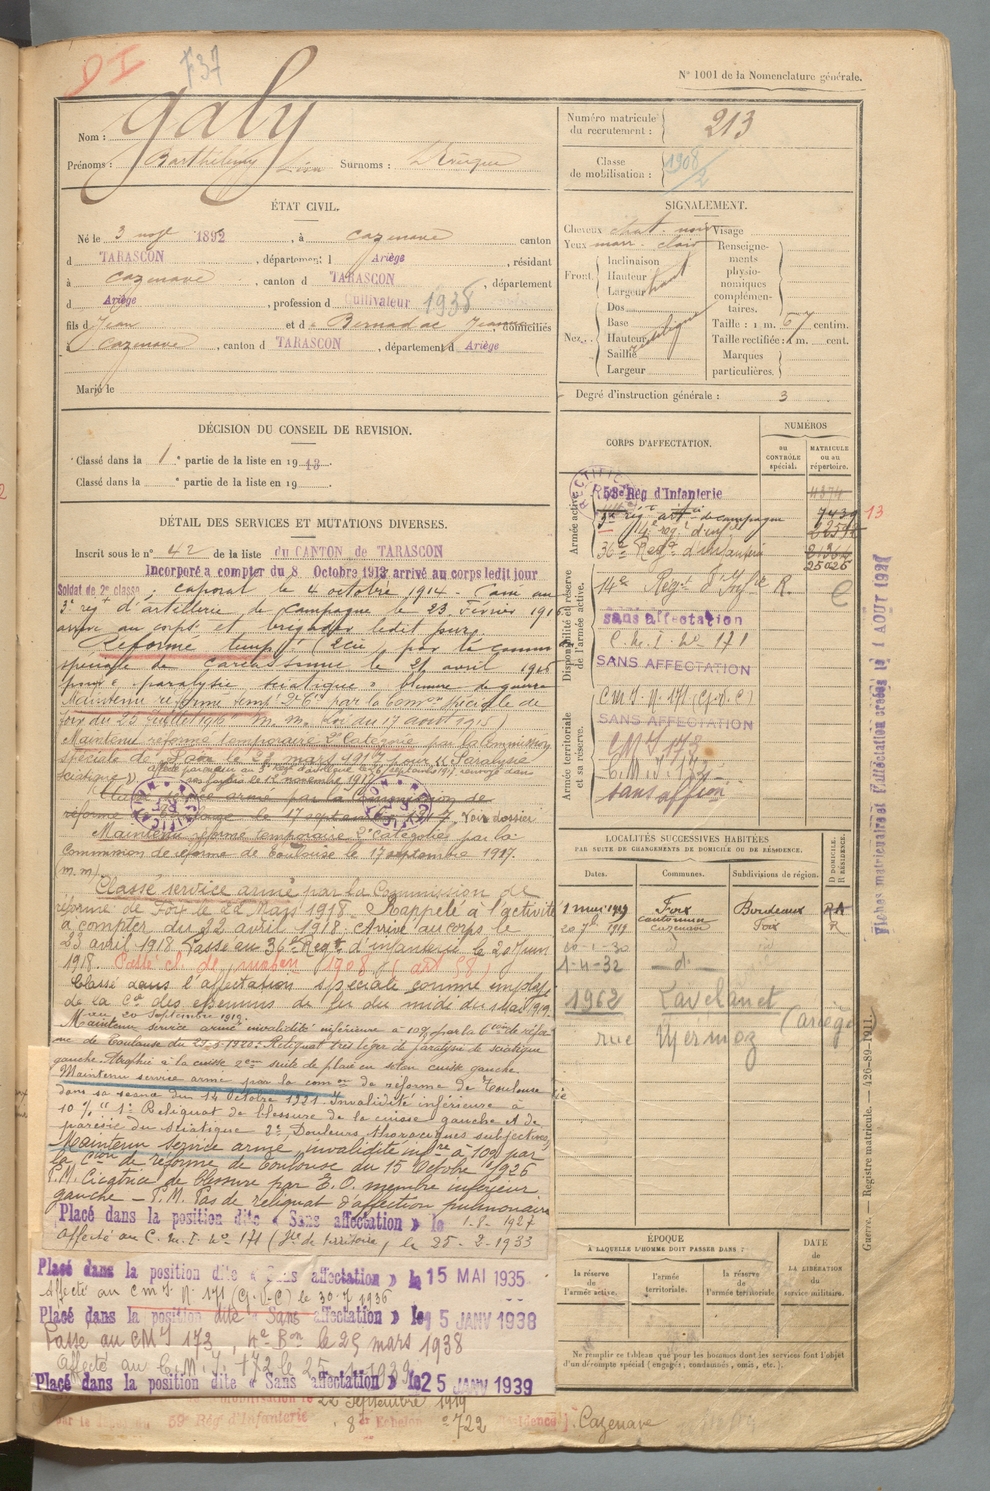 DI
F37
N° 1001 de la Nomenclature générale.
Nom : Galy
Prénoms : Barthélemy Léon Surnoms :
Numéro matricule du recrutement : 213
Classe de mobilisation : 1908/2
ÉTAT CIVIL.
Né le 3 1892, à Cazenave canton
d TARASCON, département d Ariège, résidant
à Cazenave, canton d TARASCON, département
d Ariège, profession d Cultivateur 1938
fils d Jean et d e Bernadac Jeanne, domiciliés
à Cazenave, canton d TARASCON, département d Ariège
Marié le
SIGNALEMENT.
Cheveux chat. noir Visage
Yeux marr. clair
Front. Inclinaison
Hauteur
Largeur haut
Nez. Dos
Base
Hauteur
Saillie
Largeur
Renseignements physionomiques complémentaires.
Taille : 1 m. 67 centim.
Taille rectifiée : 1 m. cent.
Marques particulières.
Degré d'instruction générale : 3
DÉCISION DU CONSEIL DE REVISION.
Classé dans la 1e partie de la liste en 1913.
Classé dans la e partie de la liste en 19
DÉTAIL DES SERVICES ET MUTATIONS DIVERSES.
Inscrit sous le n° 42 de la liste du CANTON de TARASCON
Incorporé a compter du 8 Octobre 1913 arrivé au corps ledit jour
Soldat de 2e classe; caporal le 4 octobre 1914. Passé au
3e régt d'artillerie de campagne le 23 février 1916
arrivé au corps et brigadier ledit jour
Réformé temp. par la comm
spéciale de Carcassonne le 21 avril 1916
pour "paralysie sciatique" blessure de guerre
Maintenu réformé temp. 2e Cie par la Comon spéciale de
Foix du 25 juillet 1916 (M. M. Loi du 17 août 1915)
Maintenu réformé temporaire 2e Catégorie par la Commission
spéciale de Foix le mars 1917 pour "Paralysie
sciatique"
ses foyers le 12 novembre 1917
Classé service armé par la Commission de
réforme le 17 septembre 1917. Voir dossier
Maintenu réformé temporaire 2e Catégorie par la
Commission de réforme de Toulouse le 17 septembre 1917.
(m.m.)
Classé service armé par la Commission de
réforme de Foix le 22 Mars 1918. Rappelé à l'activité
à compter du 22 avril 1918. Arrivé au corps le
23 avril 1918. Passé au 36e Régt d'infanterie le 20 juin
1918. Passé cl. de mobon 1908 (art 58)
Classé dans l'affectation spéciale comme employé
de la Cie des chemins de fer du midi du 1 mai 1919
20 Septembre 1919.
Maintenu service armé invalidité inférieure à 10% par la Con de réfor-
me de Toulouse du 1920: Reliquat très léger de paralysie de sciatique
gauche. Atrophie à la cuisse suite de plaie en séton cuisse gauche.
Maintenu service armé par la comon de réforme de Toulouse
dans sa séance du 14 Octobre 1921. Invalidité inférieure à
10% "1° Reliquat de blessure de la cuisse gauche et de
parésie du sciatique 2° Douleurs thoraciques subjectives
Maintenu service armé invalidité infre à 10% par
la Con de réforme de Toulouse du 15 Octobre 1926
P.M. Cicatrice de blessure par E.O. membre inférieur
gauche — P.M. Pas de reliquat d'affection pulmonaire
Placé dans la position dite « Sans affectation » le 1-8-1927
Affecté au C.M.I. n° 171 (Gde de territoire) le 25-2-1933
Placé dans la position dite « Sans affectation » le 15 MAI 1935
Affecté au CMI N° 171 (G.V.C) le 30-7-1936
Placé dans la position dite « Sans affectation » le 15 JANV 1938
Passe au CMI 173, 4e Bon le 25 mars 1938
Affecté au C.M.I. 172 le 25 1 1939
Placé dans la position dite « Sans affectation » le 25 JANV 1939
mobilisation le 22 Septembre 1919
59e Rég d'Infanterie 8er Echelon n° 722 (Résidence) Cazenave
CORPS D'AFFECTATION.
NUMÉROS
au CONTRÔLE spécial.
MATRICULE ou au répertoire.
Armée active.
59e Rég d'Infanterie
3e régt artie de campagne 7439 13
14e régt d'inf
36e Régt d'infanterie 25026
Disponibilité et réserve de l'armée active.
14e Régt d'Infie R.
sans affectation
C.M.I. N° 171
SANS AFFECTATION
Armée territoriale et sa réserve.
CMI. N. 171 (G.V.C)
SANS AFFECTATION
CMI 173
C.M.I. 172
sans affon
Fiches matricule et d'affectation créées le 1 AOUT 1927
LOCALITÉS SUCCESSIVES HABITÉES
PAR SUITE DE CHANGEMENTS DE DOMICILE OU DE RÉSIDENCE.
Dates. Communes. Subdivisions de région. D DOMICILE. R RÉSIDENCE.
1 mai 1919 Foix Bordeaux RA
20 7bre 1919 Cazenave Foix R
20-1-30
1-4-32 — d —
1962 Lavelanet (Ariège)
rue Mermoz
ÉPOQUE
À LAQUELLE L'HOMME DOIT PASSER DANS :
la réserve de l'armée active.
l'armée territoriale.
la réserve de l'armée territoriale
DATE de LA LIBÉRATION du service militaire.
Ne remplir ce tableau que pour les hommes dont les services font l'objet
d'un décompte spécial (engagés, condamnés, omis, etc.).
Guerre. — Registre matricule. — 426-89-1911.